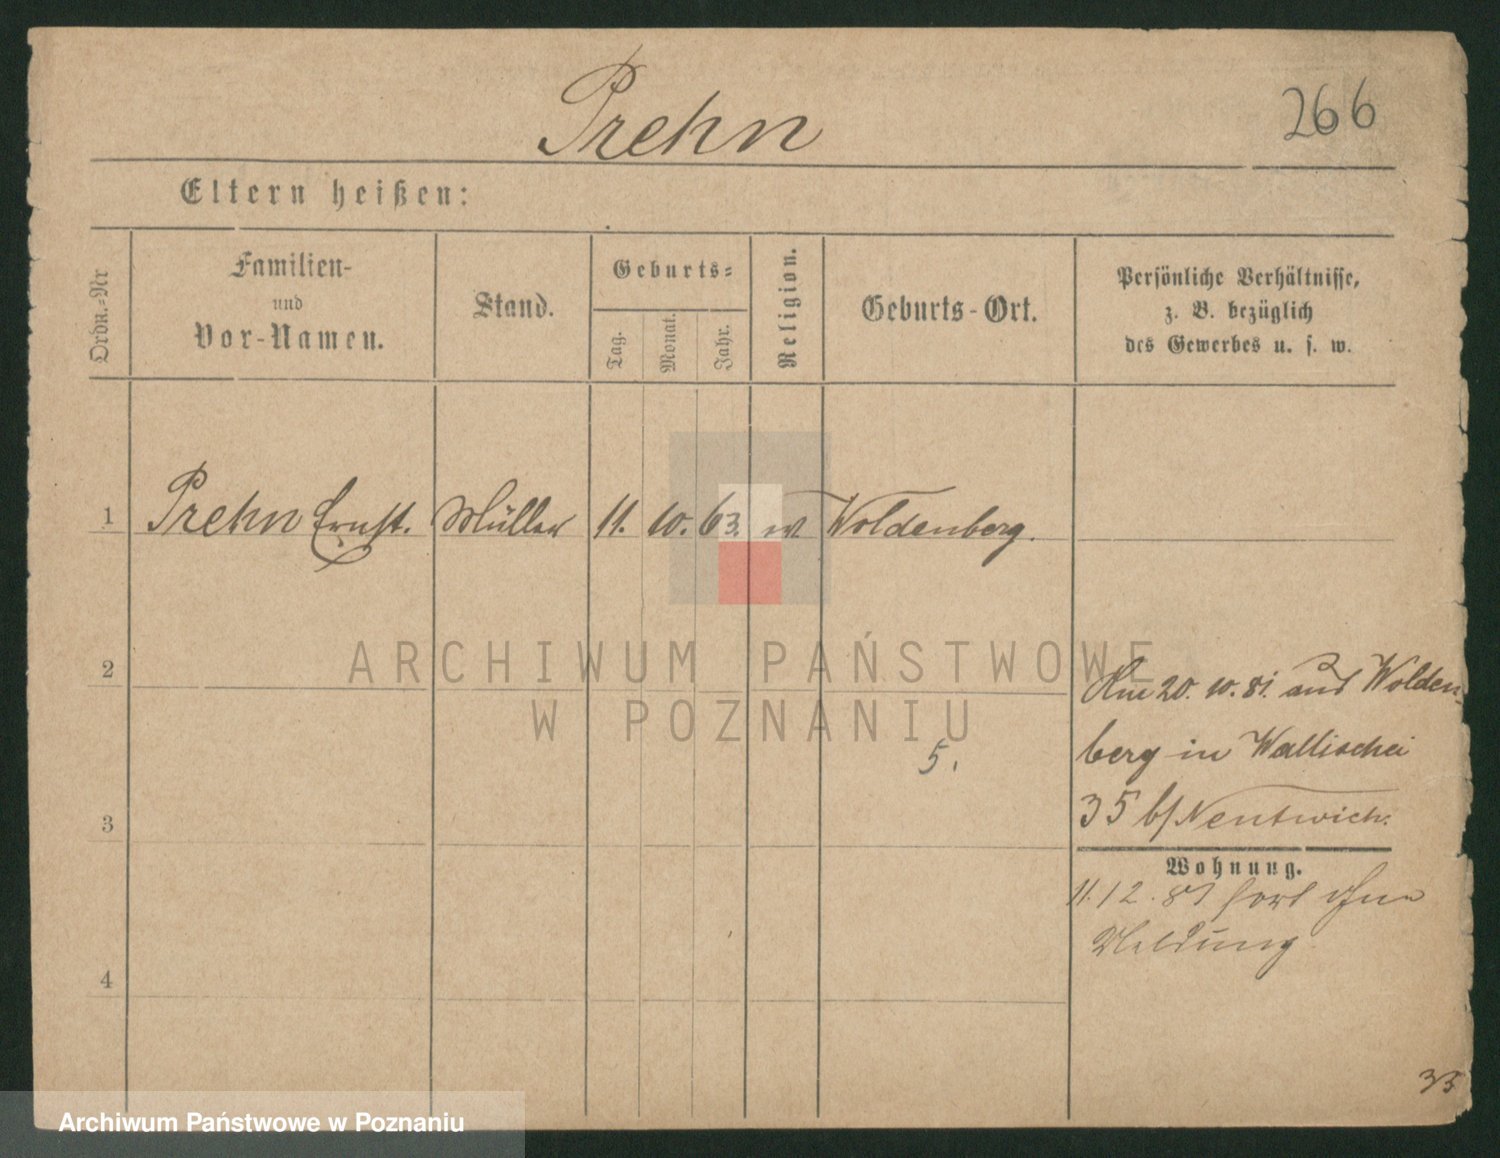 Prehn
266
Eltern heißen:
Ordn.-Nr
Familien-
und
Vor-Namen.
Stand.
Geburts-
Tag.
Monat.
Jahr.
Religion.
Geburts-Ort.
Persönliche Verhältnisse,
z. B. bezüglich
des Gewerbes u. s. w.
1 Prehn Ernst. Müller 11. 10. 63. Woldenberg.
ARCHIWUM PAŃSTWOWE
W POZNANIU
2
Am 20. 10. 81. aus Wolden-
berg in Wallischei
5.
3
35 b/ Nentwich.
Wohnung.
11. 12. 81 fort ohne
Meldung
4
35
Archiwum Państwowe w Poznaniu